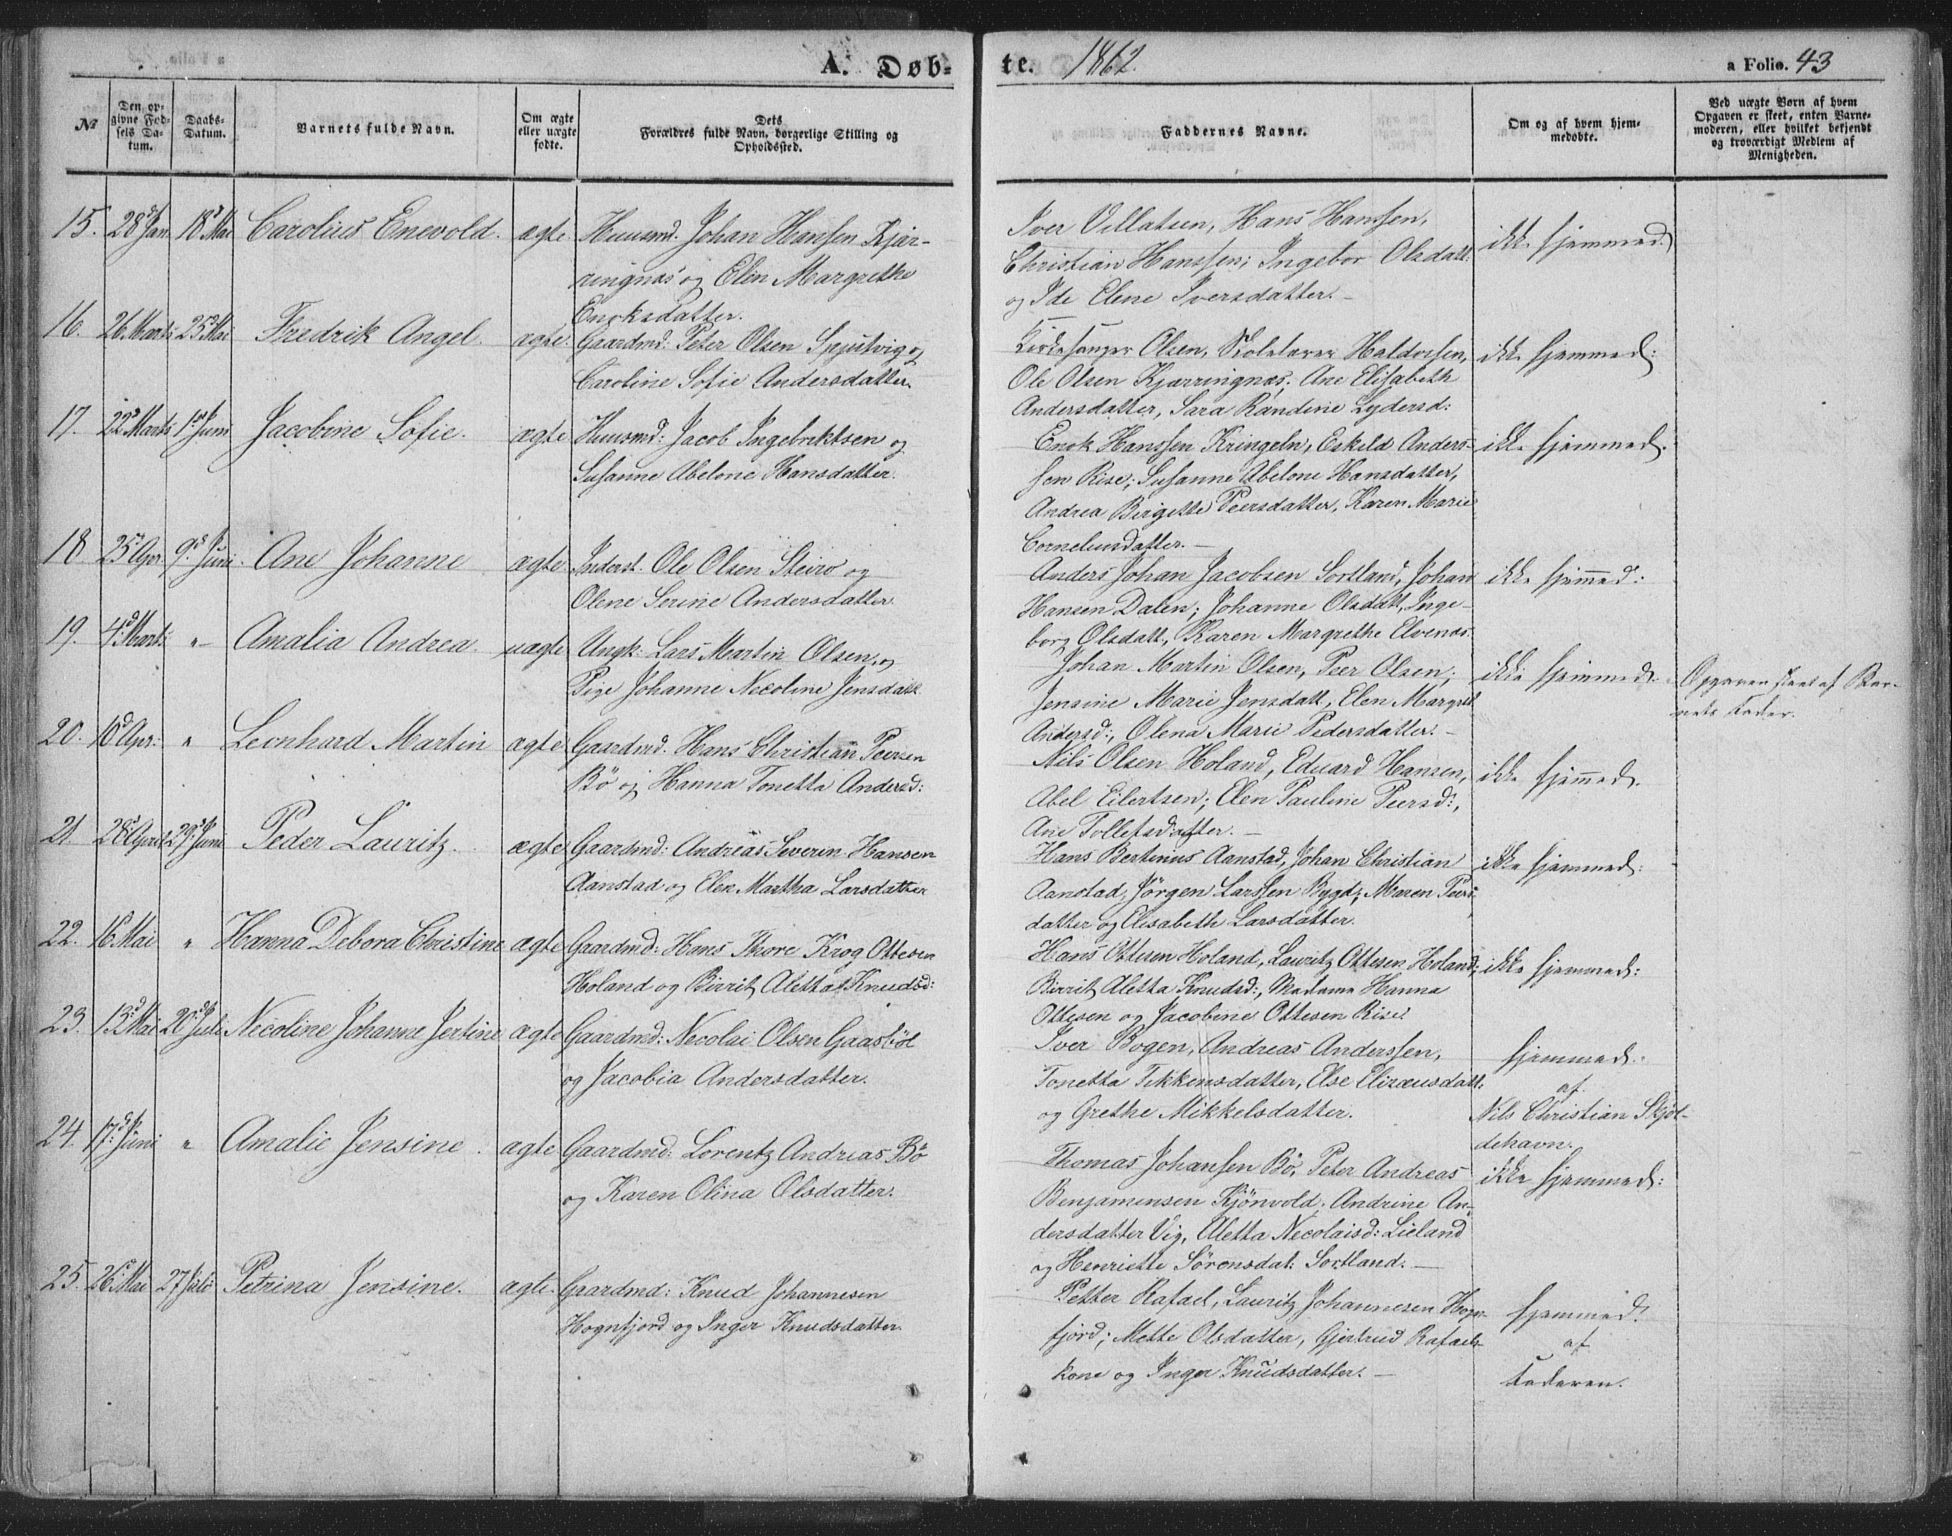 A. Døb- te. 1862. a Folio. 43
№ Den opgivne Fødsels Datum. Daabs-Datum. Barnets fulde Navn. Om ægte eller uægte fødte. Dets Forældres fulde Navn, borgerlige Stilling og Opholdssted. Faddernes Navne. Om og af hvem hjemmedøbte. Ved uægte Børn af hvem Opgaven er skeet, enten Barnemoderen, eller hvilket bekjendt og troværdigt Medlem af Menigheden.
15. 28d Jan. 18d Mai Carolius Enevold. ægte Huusmd. Johan Hansen Kjær-
ringnæs og Elen Margrethe
Enoksdatter.
Iver Villatsen, Hans Hanssen,
Christian Hanssen; Ingebor Olsdatt.
og Ide Elene Iversdatter. –
ikke hjemmed.
16. 26 Marts 25d Mai Fredrik Angel. ægte. Gaardmd. Peter Olsen Spjutvig og
Caroline Sofie Andersdatter.
Kirkesanger Olsen, Skolelærer Haldorsen,
Ole Olsen Kjærringnæs; Ane Elisabeth
Andersdatter, Sara Randine Lydersd:
ikke hjemmed:
17. 22d Marts 1ste Juni Jacobine Sofie. ægte Huusmd: Jacob Ingebriktsen og
Susanne Abelone Hansdatter.
Enok Hanssen Kringeln, Eskild Anders-
sen Rise; Susanne Abelone Hansdatter,
Andrea Birgitte Peersdatter, Karen Marie
Corneliusdatter. –
ikke hjemmed.
18 25d Apr. 9d Juni. Ane Johanne ægte Inderst. Ole Olsen Steiro og
Olene Serine Andersdatter.
Anders Johan Jacobsen Sortland, Johan
Hansen Dalen; Johanne Olsdatt, Inge-
borg Olsdatt, Karen Margrethe Elvenæs.
ikke hjemmed:
19. 4d Marts " – Amalia Andrea. uægte Ungk. Lars Martin Olsen og
Pige Johanne Necoline Jensdatt.
Johan Martin Olsen, Peer Olsen;
Jensine Marie Jensdatt, Elen Margret
Andersd:, Olena Marie Pedersdatter. –
ikke hjemmed.
Opgaven skeet af Bar-
nets Fader.
20. 10d Apr: " Leonhard Martin ægte Gaardmd. Hans Christian Peersen
Bö og Hanna Tonetta Andersd:
Nils Olsen Holand, Eduard Hansen,
Abel Eilertsen; Elen Pauline Peersd:,
Ane Tollefsdatter. –
ikke hjemmed.
21. 28d April 29d Juni Peder Lauritz. ægte Gaardmd: Andreas Severin Hansen
Aanstad og Elen Martha Larsdatter
Hans Bertinius Aanstad, Johan Christian
Aanstad, Jörgen Larssen Bygd; Maren Peers
datter og Elisabeth Larsdatter.
ikke hjemmed:
22. 16 Mai " Hanna Debora Christine ægte Gaardmd: Hans Thore Krog Ottesen
Holand og Birrit Aletta Knudsd:
Hans Ottesen Holand, Lauritz Ottesen Holand;
Birrit Aletta Knudsd:, Madame Hanna
Ottesen og Jacobine Ottesen Rise.
ikke hjemmed:
23. 13d Mai 20d Juli Necoline Johanne Jertine ægte Gaardmd: Necolai Olsen Gaasböl
og Jacobia Andersdatter.
Iver Bogen, Andreas Anderssen,
Tonetta Tikkensdatter, Else Elizæusdatt.
og Grethe Mikkelsdatter.
hjemmed:
af
Nils Christian Skjol-
dehavn.
24. 17d Juni " Amalie Jensine. ægte Gaardmd: Lorentz Andreas Bö
og Karen Olina Olsdatter.
Thomas Johansen Bö, Peter Andreas
Benjaminsen Kjönvold; Andrine An-
dersdatter Vig, Aletta Necolaisd: Lieland
og Henriette Sörensdat: Sortland. –
ikke hjemmed:
25. 26 Mai 27 Juli Petrina Jensine. ægte. Gaardmd: Knud Johannesen
Hognfjord og Inger Knudsdatter.
Petter Rafael, Lauritz Johannesen Hogn-
fjord; Mette Olsdatter, Gjertrud Rafaels
kone og Inger Knudsdatter. –
hjemmed:
af
Faderen.